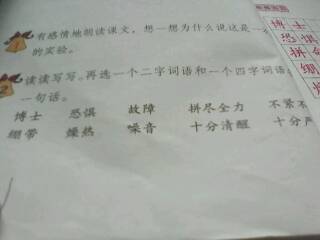 有感情地朗读课文，想一想为什么说这是一
的实验。
2 读读写写。再选一个二字词语和一个四字词语
一句话。
博士 恐惧 故障 拼尽全力 不紧不
绷带 燥热 噪音 十分清醒 十分严
博士
恐惧
拼
绷